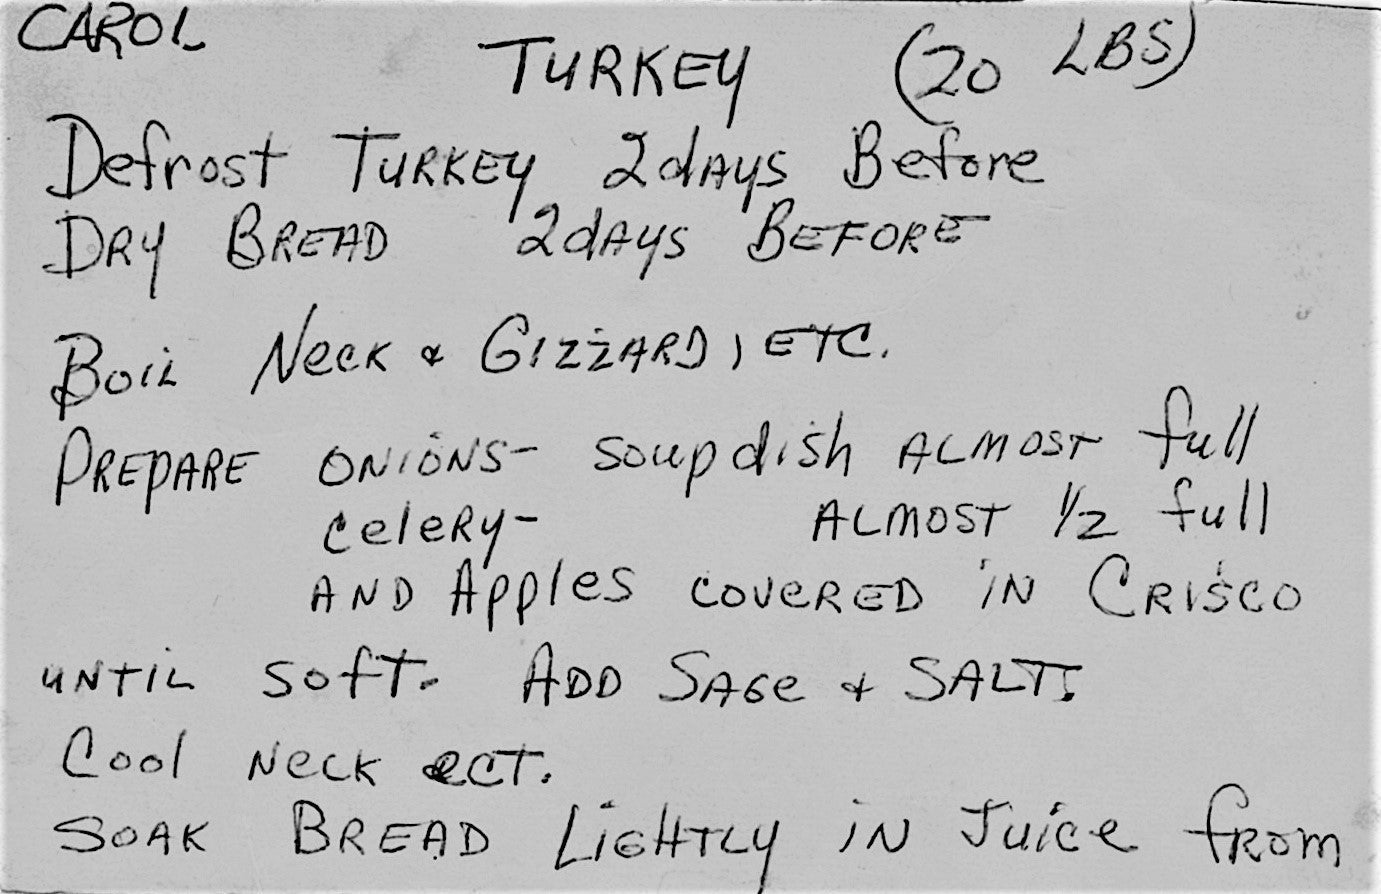 CAROL
TURKEY (20 LBS)
Defrost TURKEY 2 dAys Before
DRY BREAD 2 dAys BEFORE
Boil Neck & GIZZARD, ETC.
PREPARE ONIONS- soup dish ALMOST full
celeRy- ALMOST 1/2 full
AND Apples coveRED iN CRiSCO
UNTiL soft. ADD SAGe & SALT.
Cool NecK ect.
SOAK BREAD LiGHTLy iN Juice fROM